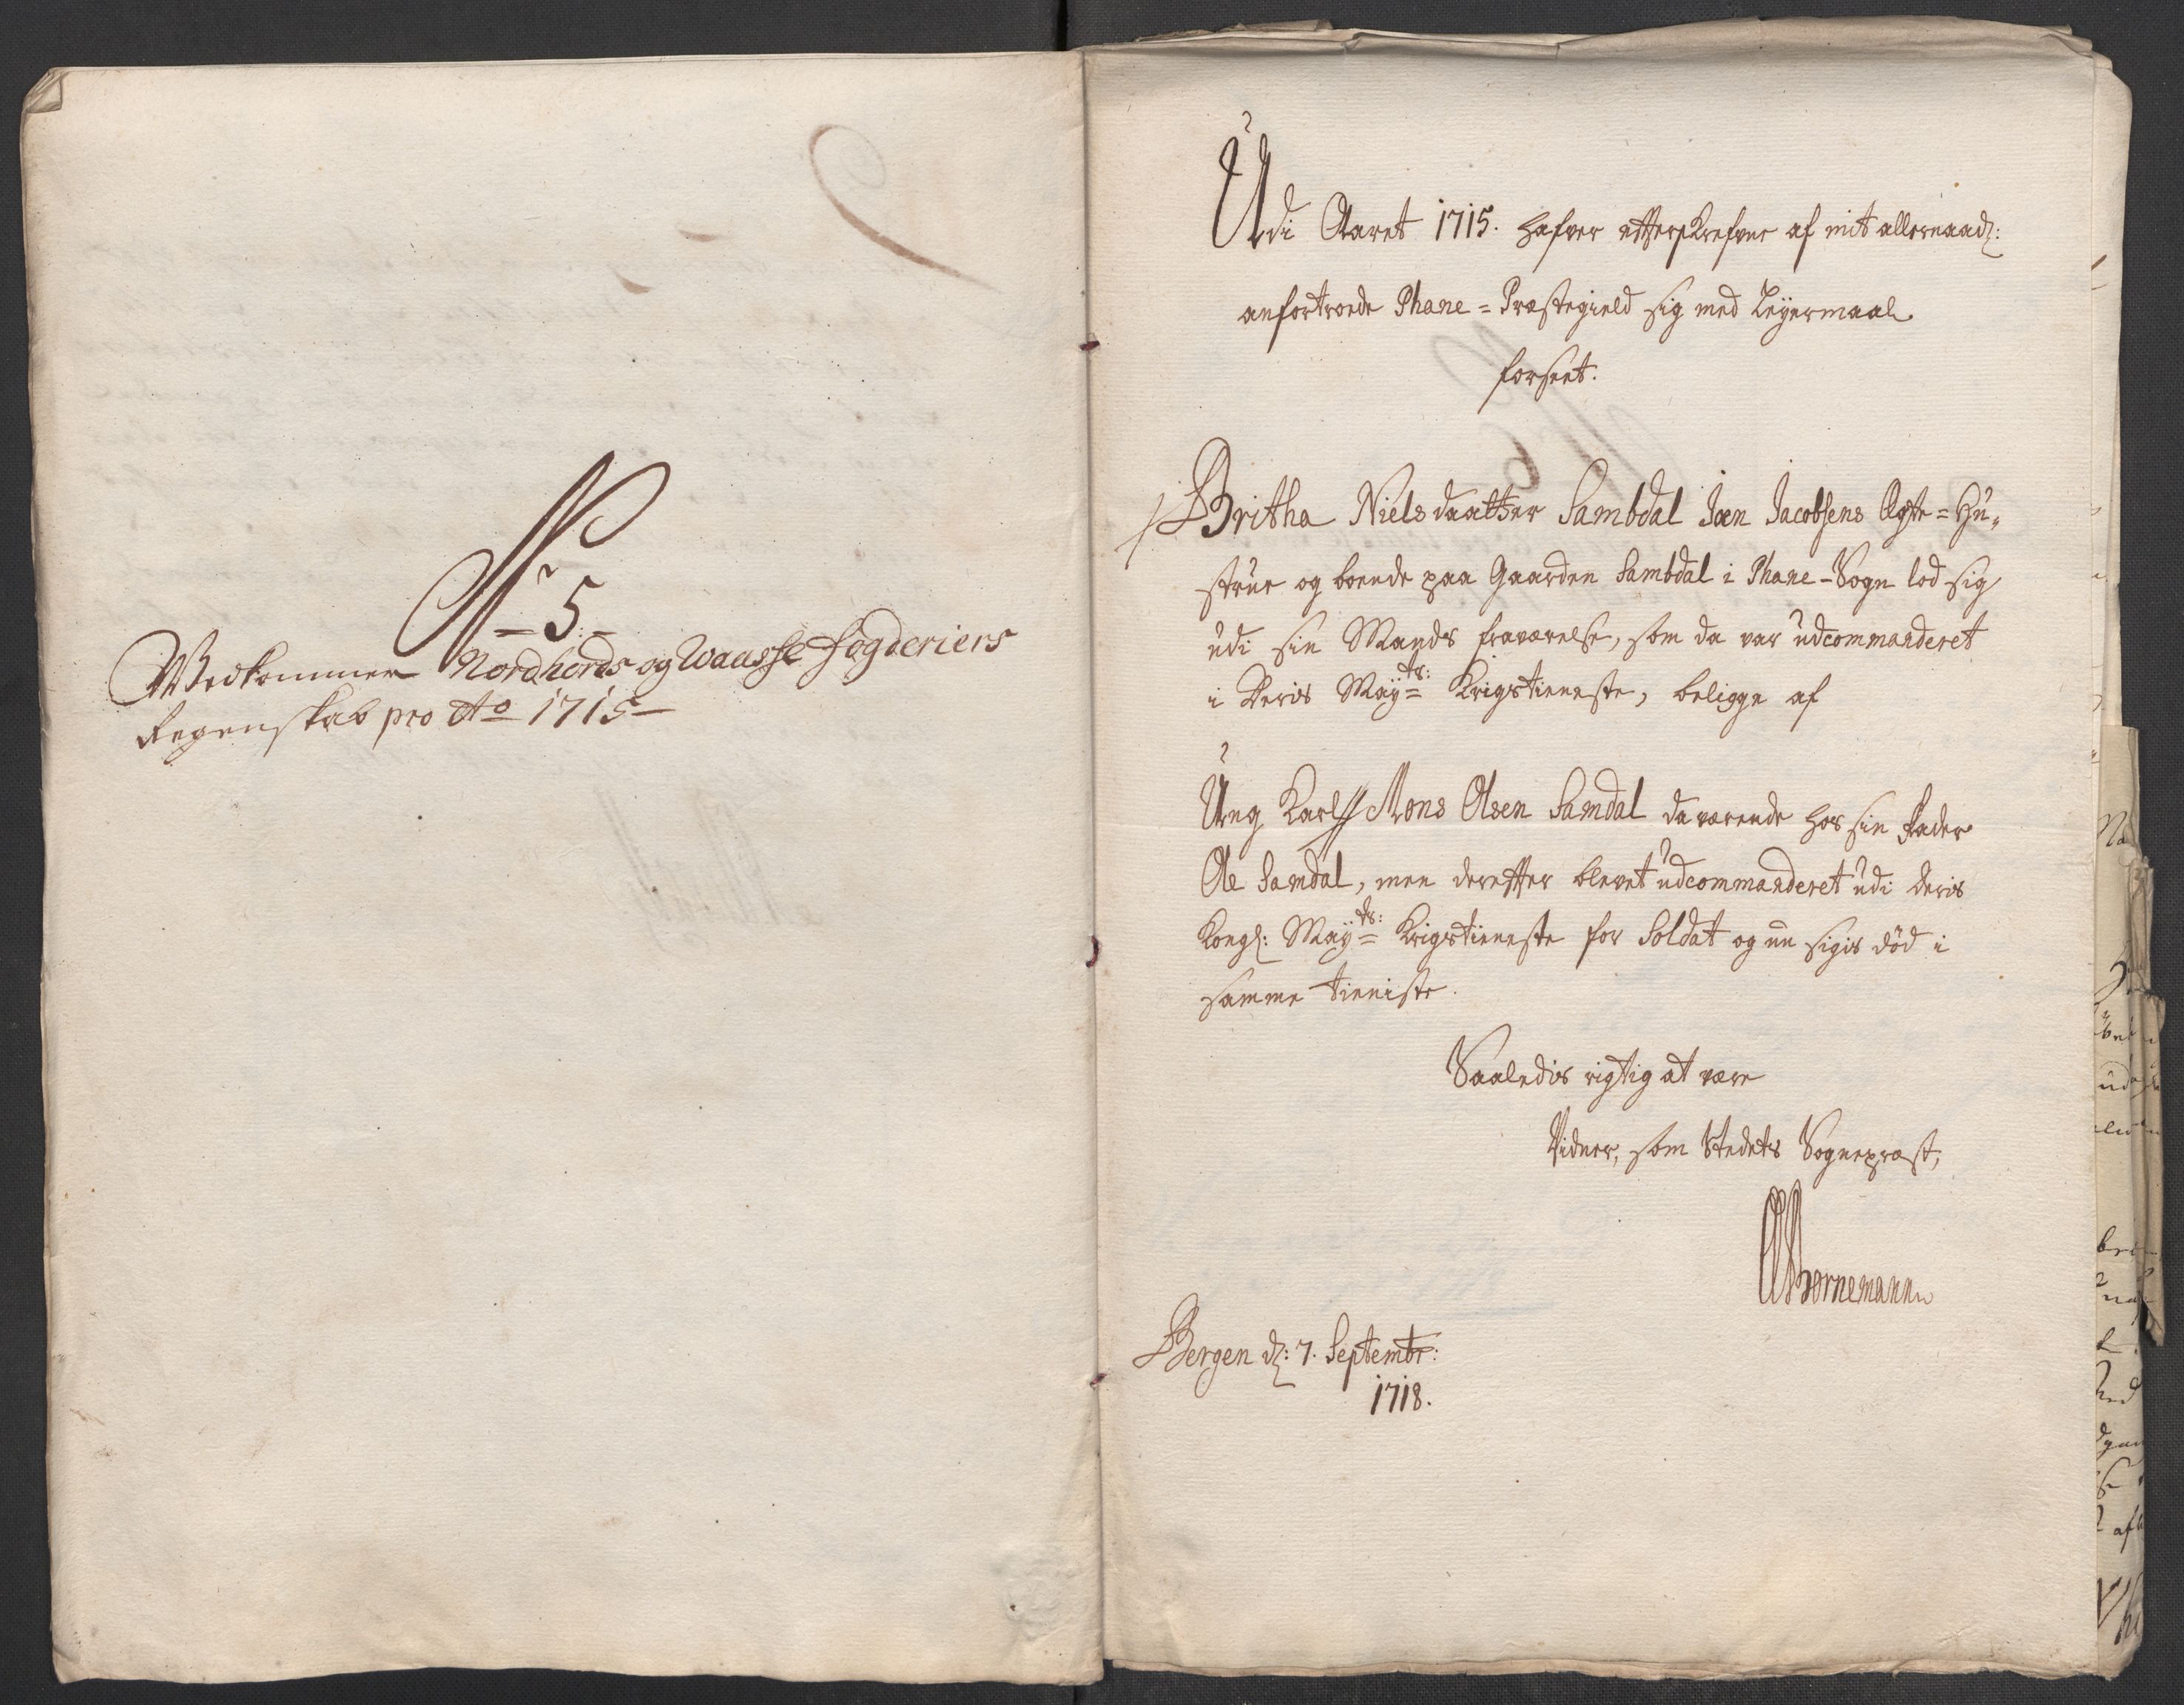 No 5
Vedkommer Nordhords og Waasse fogderiers
Regenskab pro Ao 1715
Udi Aaret 1715. hafver efterskrefvne af mit allernaad:
anfortroede Phane=Præstegield sig med Leyermaal
forseet.
Britha Nielsdaatter Sambdal Joen Jacobsens Ægte=Hu„
strue og boende paa Gaarden Sambdal i Phane=Sogn lod sig
udi sin Mands fraværelse, som da var udcommanderet
i Deris Mayts: Krigstieneste, beligge af
Ung Karl Mons Olsen Samdal da værende hos sin Fader
Ole Samdal, men derefter blevet udcommanderet udi Deris
Kongl: Mayts: Krigstieneste for Soldat og nu sigis død i
samme tieniste.
Saaledis rigtig at være
Vidner, som Stedets Sognepræst,
Bornemann
Bergen d: 7. Septembr:
1718.